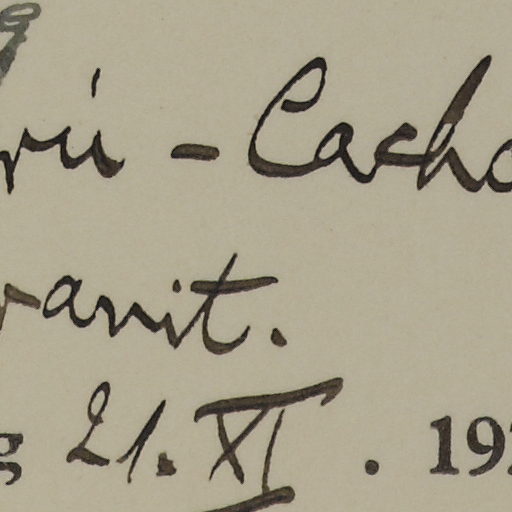 rii - Cacho
ranit.
g 21. XI . 192